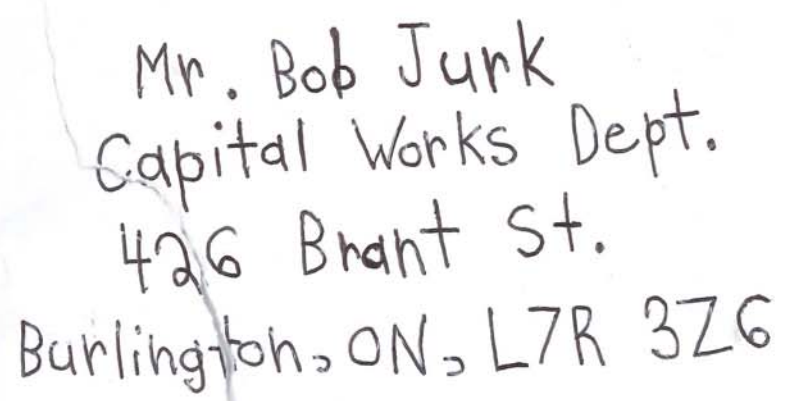 Mr. Bob Jurk
Capital Works Dept.
426 Brant St.
Burlington, ON, L7R 3Z6